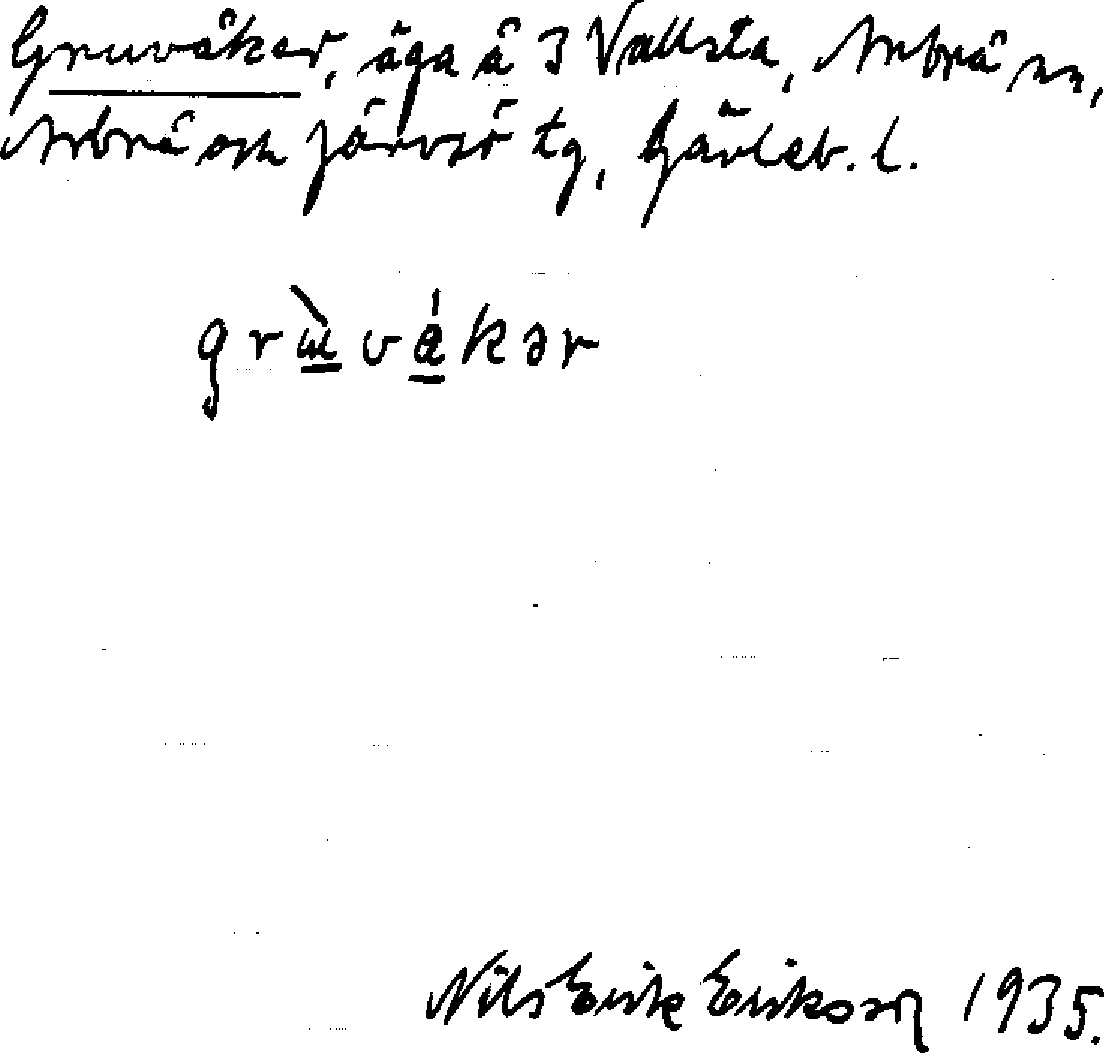 Gruvåker, äga å 3 Vallsta, Arbrå sn,
Arbrå och Järvsö tg, Gävleb. l.
grùvákər
Nils Erik Eriksson 1935.